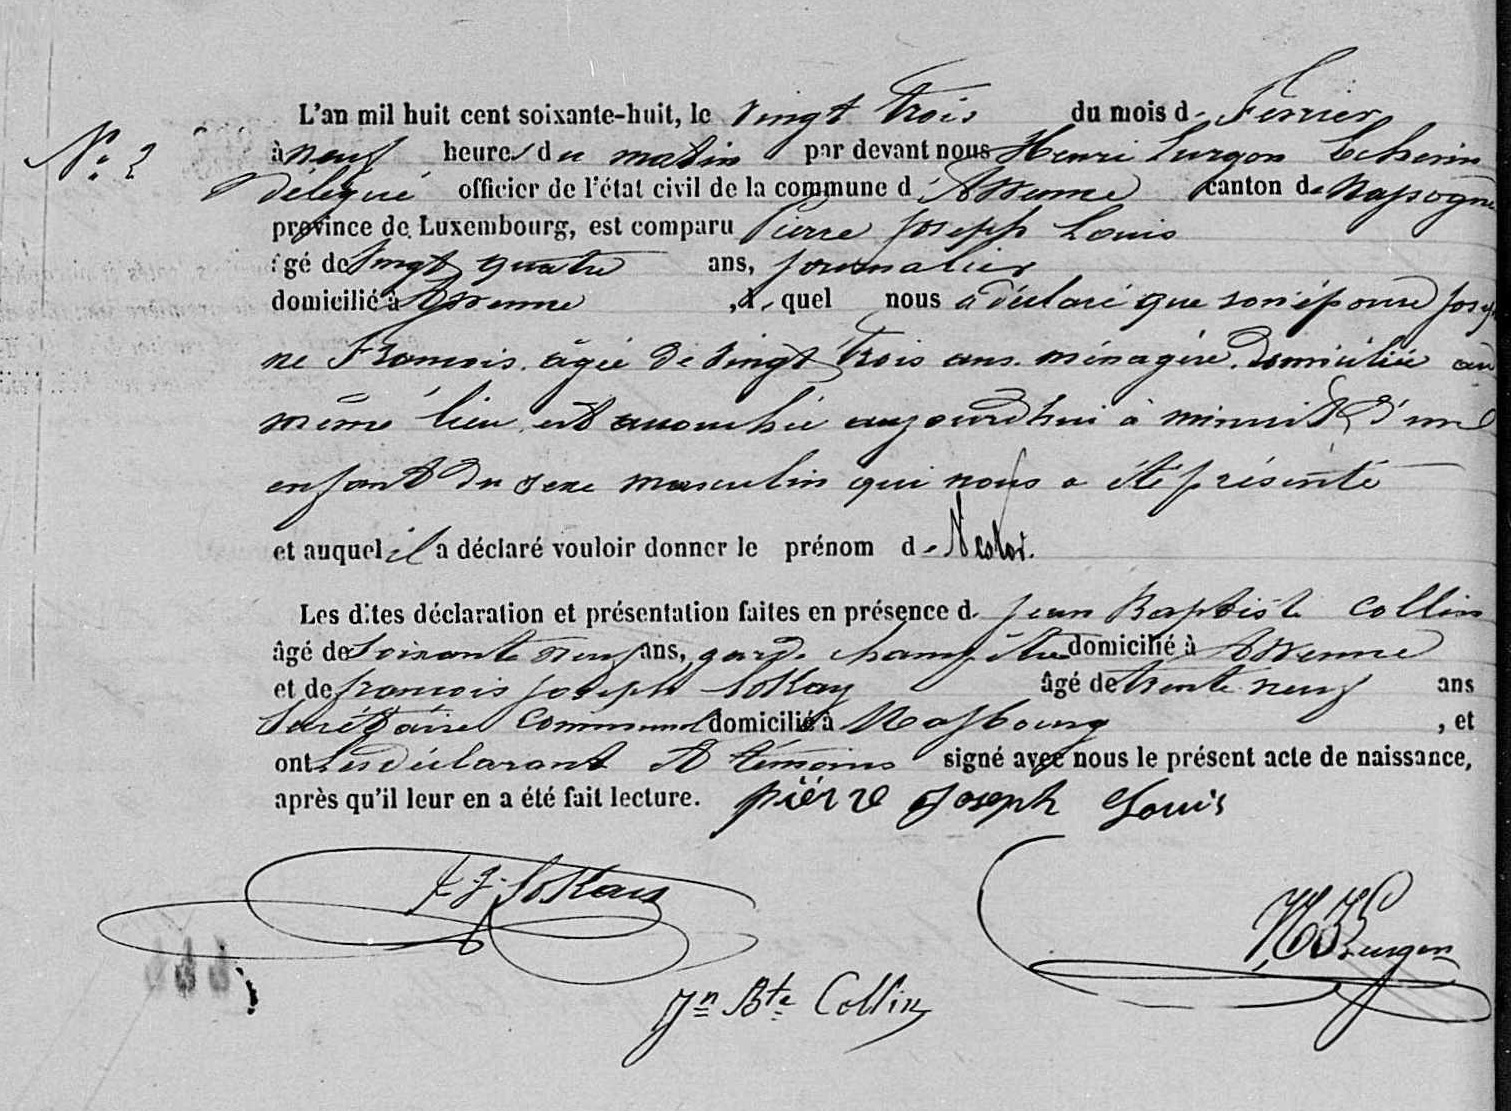 N° 2
L'an mil huit cent soixante-huit, le vingt trois du mois de Fevrier
à neuf heures du matin par devant nous Henri Lurgon Echevin
Délégué officier de l'état civil de la commune d'Awenne canton de Nassogne
province de Luxembourg, est comparu Pierre Joseph Louis
âgé de vingt quatre ans, journalier
domicilié à Awenne , le quel nous a déclaré que son épouse Josephi
ne François, âgée de vingt trois ans ménagère, domiciliée au
même lieu, est accouchée aujourd'hui à minuit d'un
enfant du sexe masculin qui nous a été présenté
et auquel il a déclaré vouloir donner le prénom de Nestor.
Les dites déclaration et présentation faites en présence de Jean Baptiste Collin
âgé de soixante neuf ans, garde champêtre domicilié à Awenne
et de françois joseph Sokay âgé de trente neuf ans
Secrétaire Communal domicilié à Masbourg , et
ont les déclarant et témoins signé avec nous le présent acte de naissance,
après qu'il leur en a été fait lecture. pierre Joseph Louis
F. J. Sokay
Jn Bte Collin